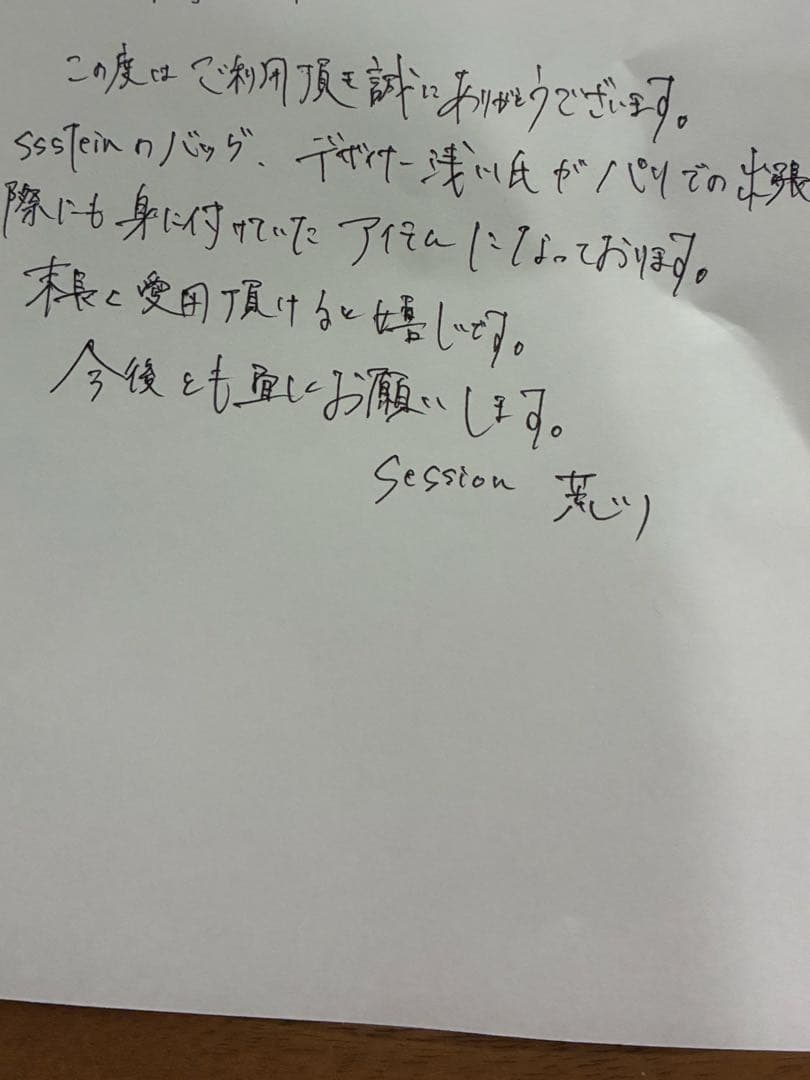 この度はご利用頂き誠にありがとうございます。
sssteinのバッグ、デザイナー浅川氏がパリでの出張
際にも身に付けていたアイテムになっております。
末長く愛用頂けると嬉しいです。
今後とも宜しくお願いします。
Session